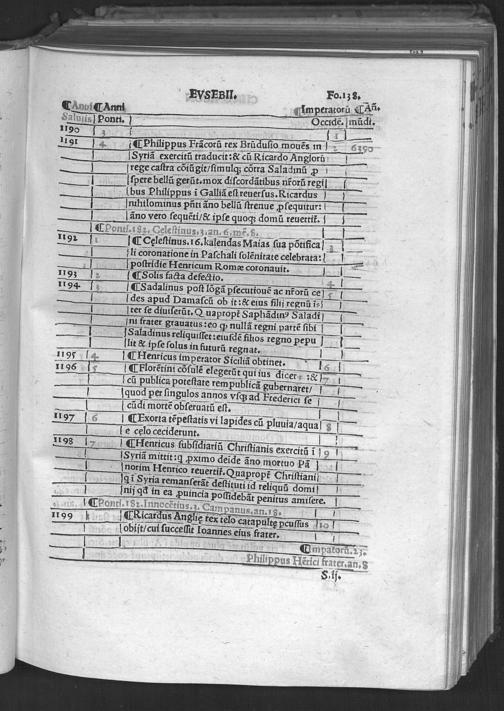 EVSEBII. Fo.138.
¶Anni ¶Anni ¶Imperatorũ ¶Añ.
Salutis Ponti. Occidẽ. mũdi.
1190 3 1
1191 4 ¶Philippus Frãcorũ rex Brũdusio mouẽs in 2 6390
Syriã exercitũ traducit: & cũ Ricardo Anglorũ
rege castra cõiũgit/simulq; cõtra Saladinũ ꝓ
spere bellũ gerũt. mox discordãtibus nr̃orũ regi
bus Philippus i Galliã est reuersus. Ricardus
nuhilominus pñti ãno bellũ strenue ꝓsequitur:
ãno vero sequẽti/& ipse quoq; domũ reuertit̃.
¶Ponti.182. Celestinus.3.an.6.mẽ.8.
1192 1 ¶Celestinus.16.kalendas Maias sua põtifica 3
li coronatione in Paschali solẽnitate celebrata:
postridie Henricum Romæ coronauit.
1193 2 ¶Solis facta defectio. 4
1194 3 ¶Sadalinus post lõgã ꝑsecutiouẽ ac nr̃orũ ce 5
des apud Damascũ ob it: & eius filii regnũ i
ter se diuiserũt. Quapropẽ Saphãdinꝰ Saladi
ni frater grauatus: eo ꝙ nullã regni partẽ sibi
Saladinus reliquisset: eiusdẽ filios regno pepu
lit & ipse solus in futurũ regnat.
1195 4 ¶Henricus imperator Siciliũ obtinet. 6
1196 5 ¶Florẽtini cõsulẽ elegerũt qui ius dicer : & 7
cũ publica potestate rempublicã gubernaret/
quod per singulos annos vsq; ad Frederici se
cũdi mortẽ obseruatũ est.
1197 6 ¶Exorta tẽpestatis vi lapides cũ pluuia/aqua 8
e celo ceciderunt.
1198 7 ¶Henricus subsidiariũ Christianis exercitũ i 9
Syriã mittit: q ꝓximo deide ãno mortuo Pã
norim Henrico reuertit̃. Quapropẽ Christiani
q i Syria remanserãt destituti id reliquũ domi
nij qd̃ in ea ꝓuincia possidebãt penitus amisere.
¶Ponti.183. Innocẽtius.3. Campanus.an.18.
1199 ¶Ricardus Anglię rex telo catapultę ꝑcussus 10
obijt/cui successit Ioannes eius frater.
¶Impatorũ.23.
Philippus Hẽrici frater.an.8
S.ij.